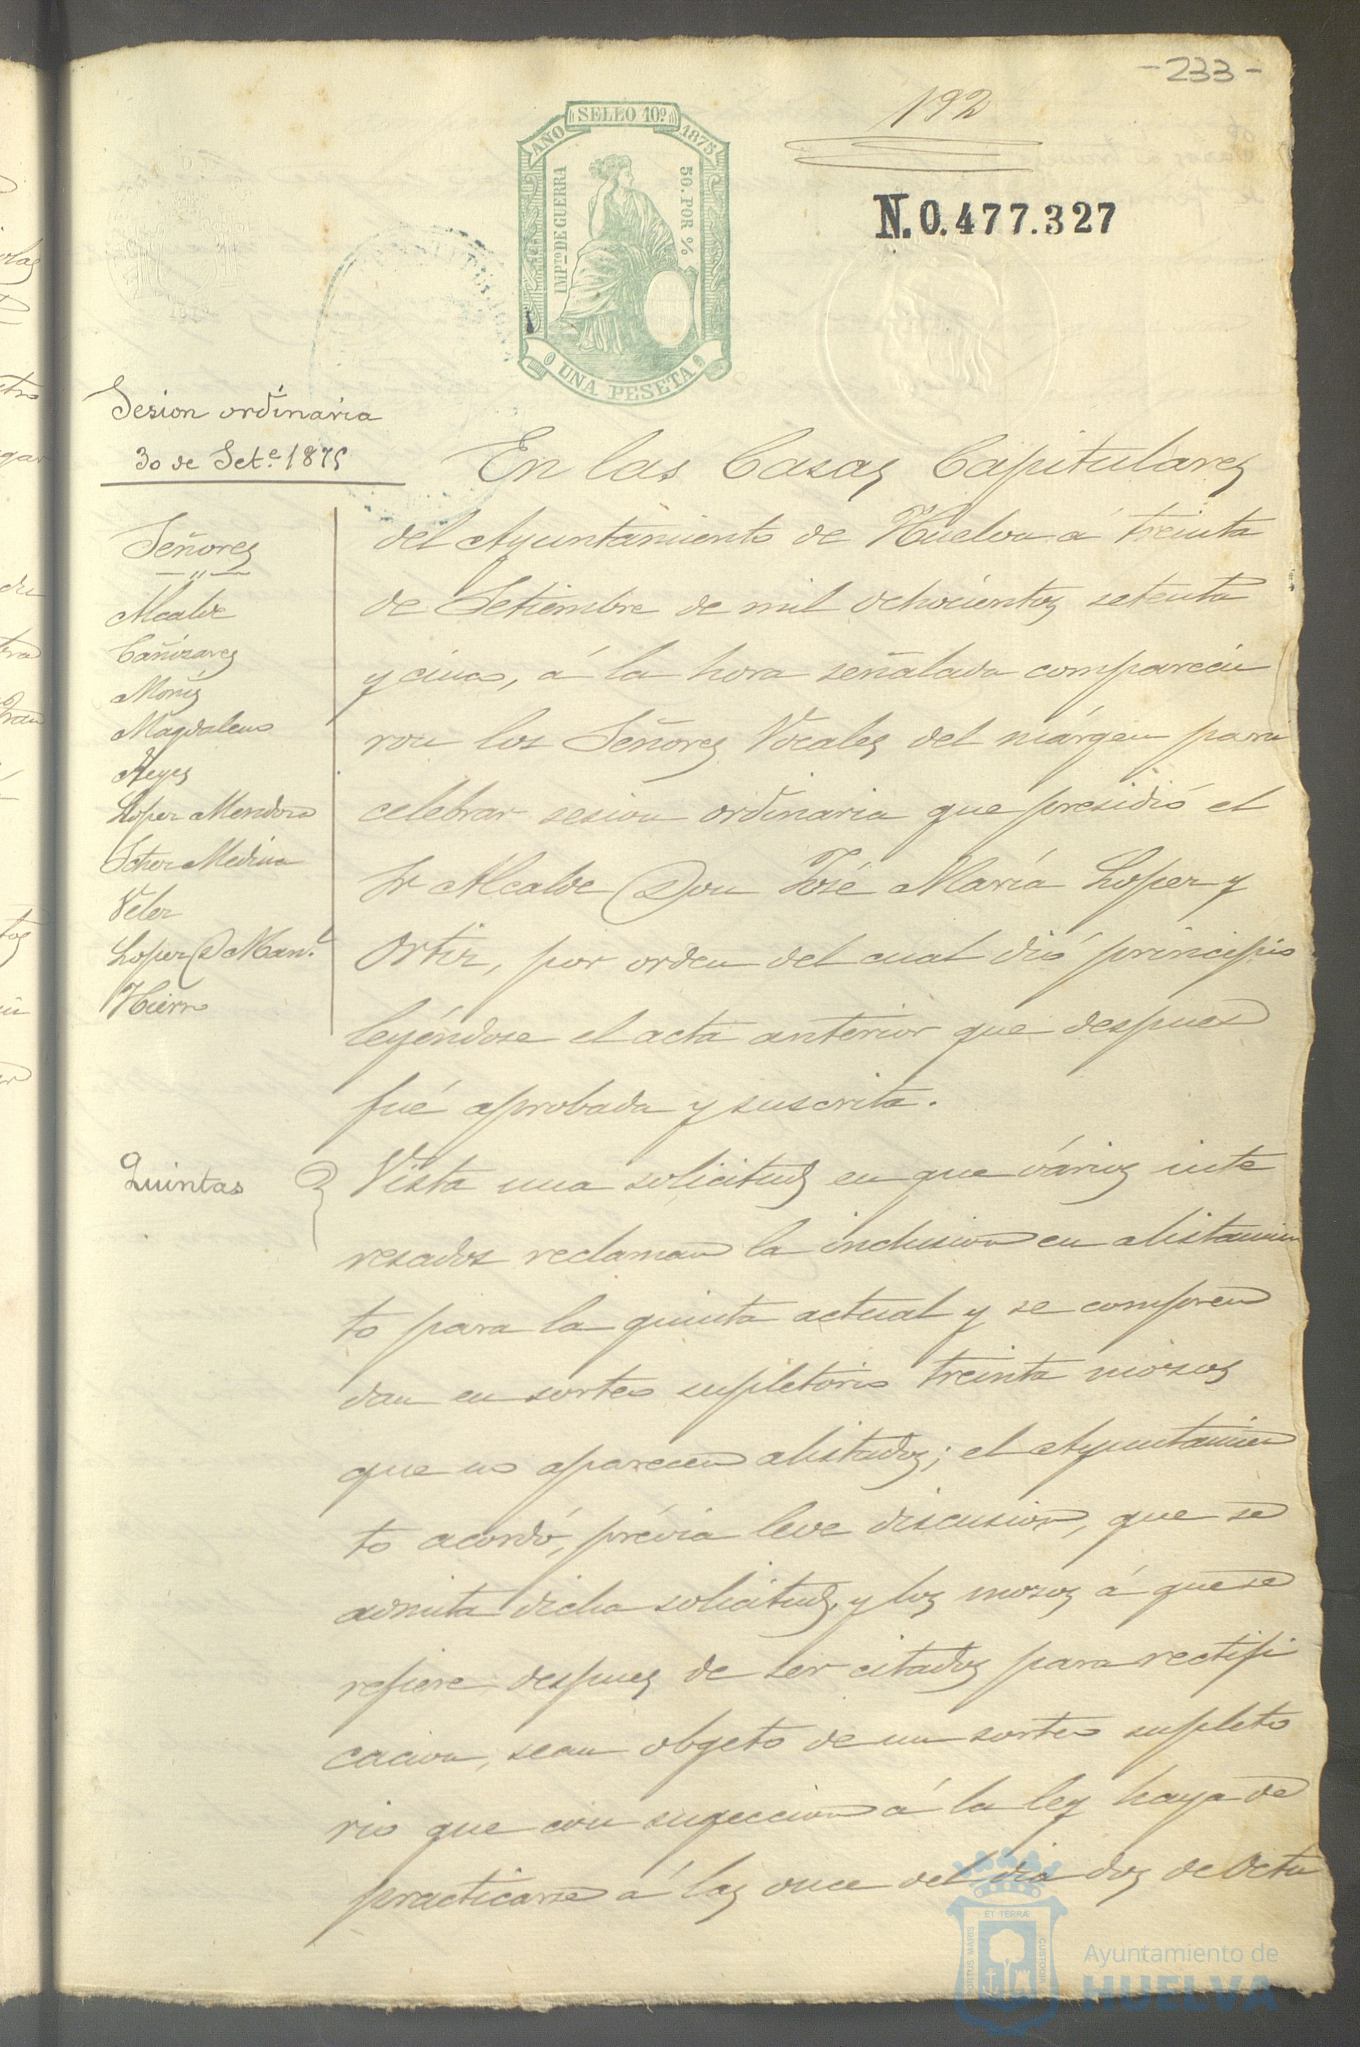 -233-
192
SELLO 10º
AÑO 1875
IMPTO DE GUERRA
50. POR %
UNA PESETA
N. 0.477.327
Sesion ordinaria
30 de Set.e 1875
Señores
Alcalde
Cañizares
Moñiz
Magdaleno
Reyes
Lopez Mendoza
Soher Medina
Velez
Lopez D Man.l
Hierro
En las Casas Capitulares
del Ayuntamiento de Huelva á treinta
de Setiembre de mil ochocientos setenta
y cinco, á la hora señalada comparecie
ron los Señores Vocales del márgen para
celebrar sesion ordinaria que presidió el
Sr Alcalde Don José María Lopez y
Ortiz, por orden del cual dió principio
leyéndose el acta anterior que despues
fué aprobada y suscrita.
Quintas
Vista una solicitud en que vários inte
resados reclaman la inclusion en alistamien
to para la quinta actual y se compren
dan en sorteo supletorio treinta mozos
que no aparecen alistados; el Ayuntamien
to acordó, prévia leve discusion, que se
admita dicha solicitud, y los mozos á que se
refiere, despues de ser citados para rectifi
cacion, sean objeto de un sorteo supleto
rio que con sugeccion á la ley haya de
practicarse á las once del dia dos de Octu
ET TERRÆ
PORTUS MARIS
CUSTODIA
Ayuntamiento de
HUELVA